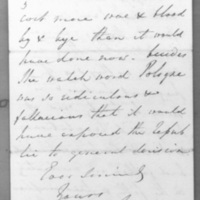 3
cost more war & blood
by & bye than it would
have done now. besides
the watch word Pologne
was so ridiculous &
fallacious that it would
have exposed the
to general derision
Yours